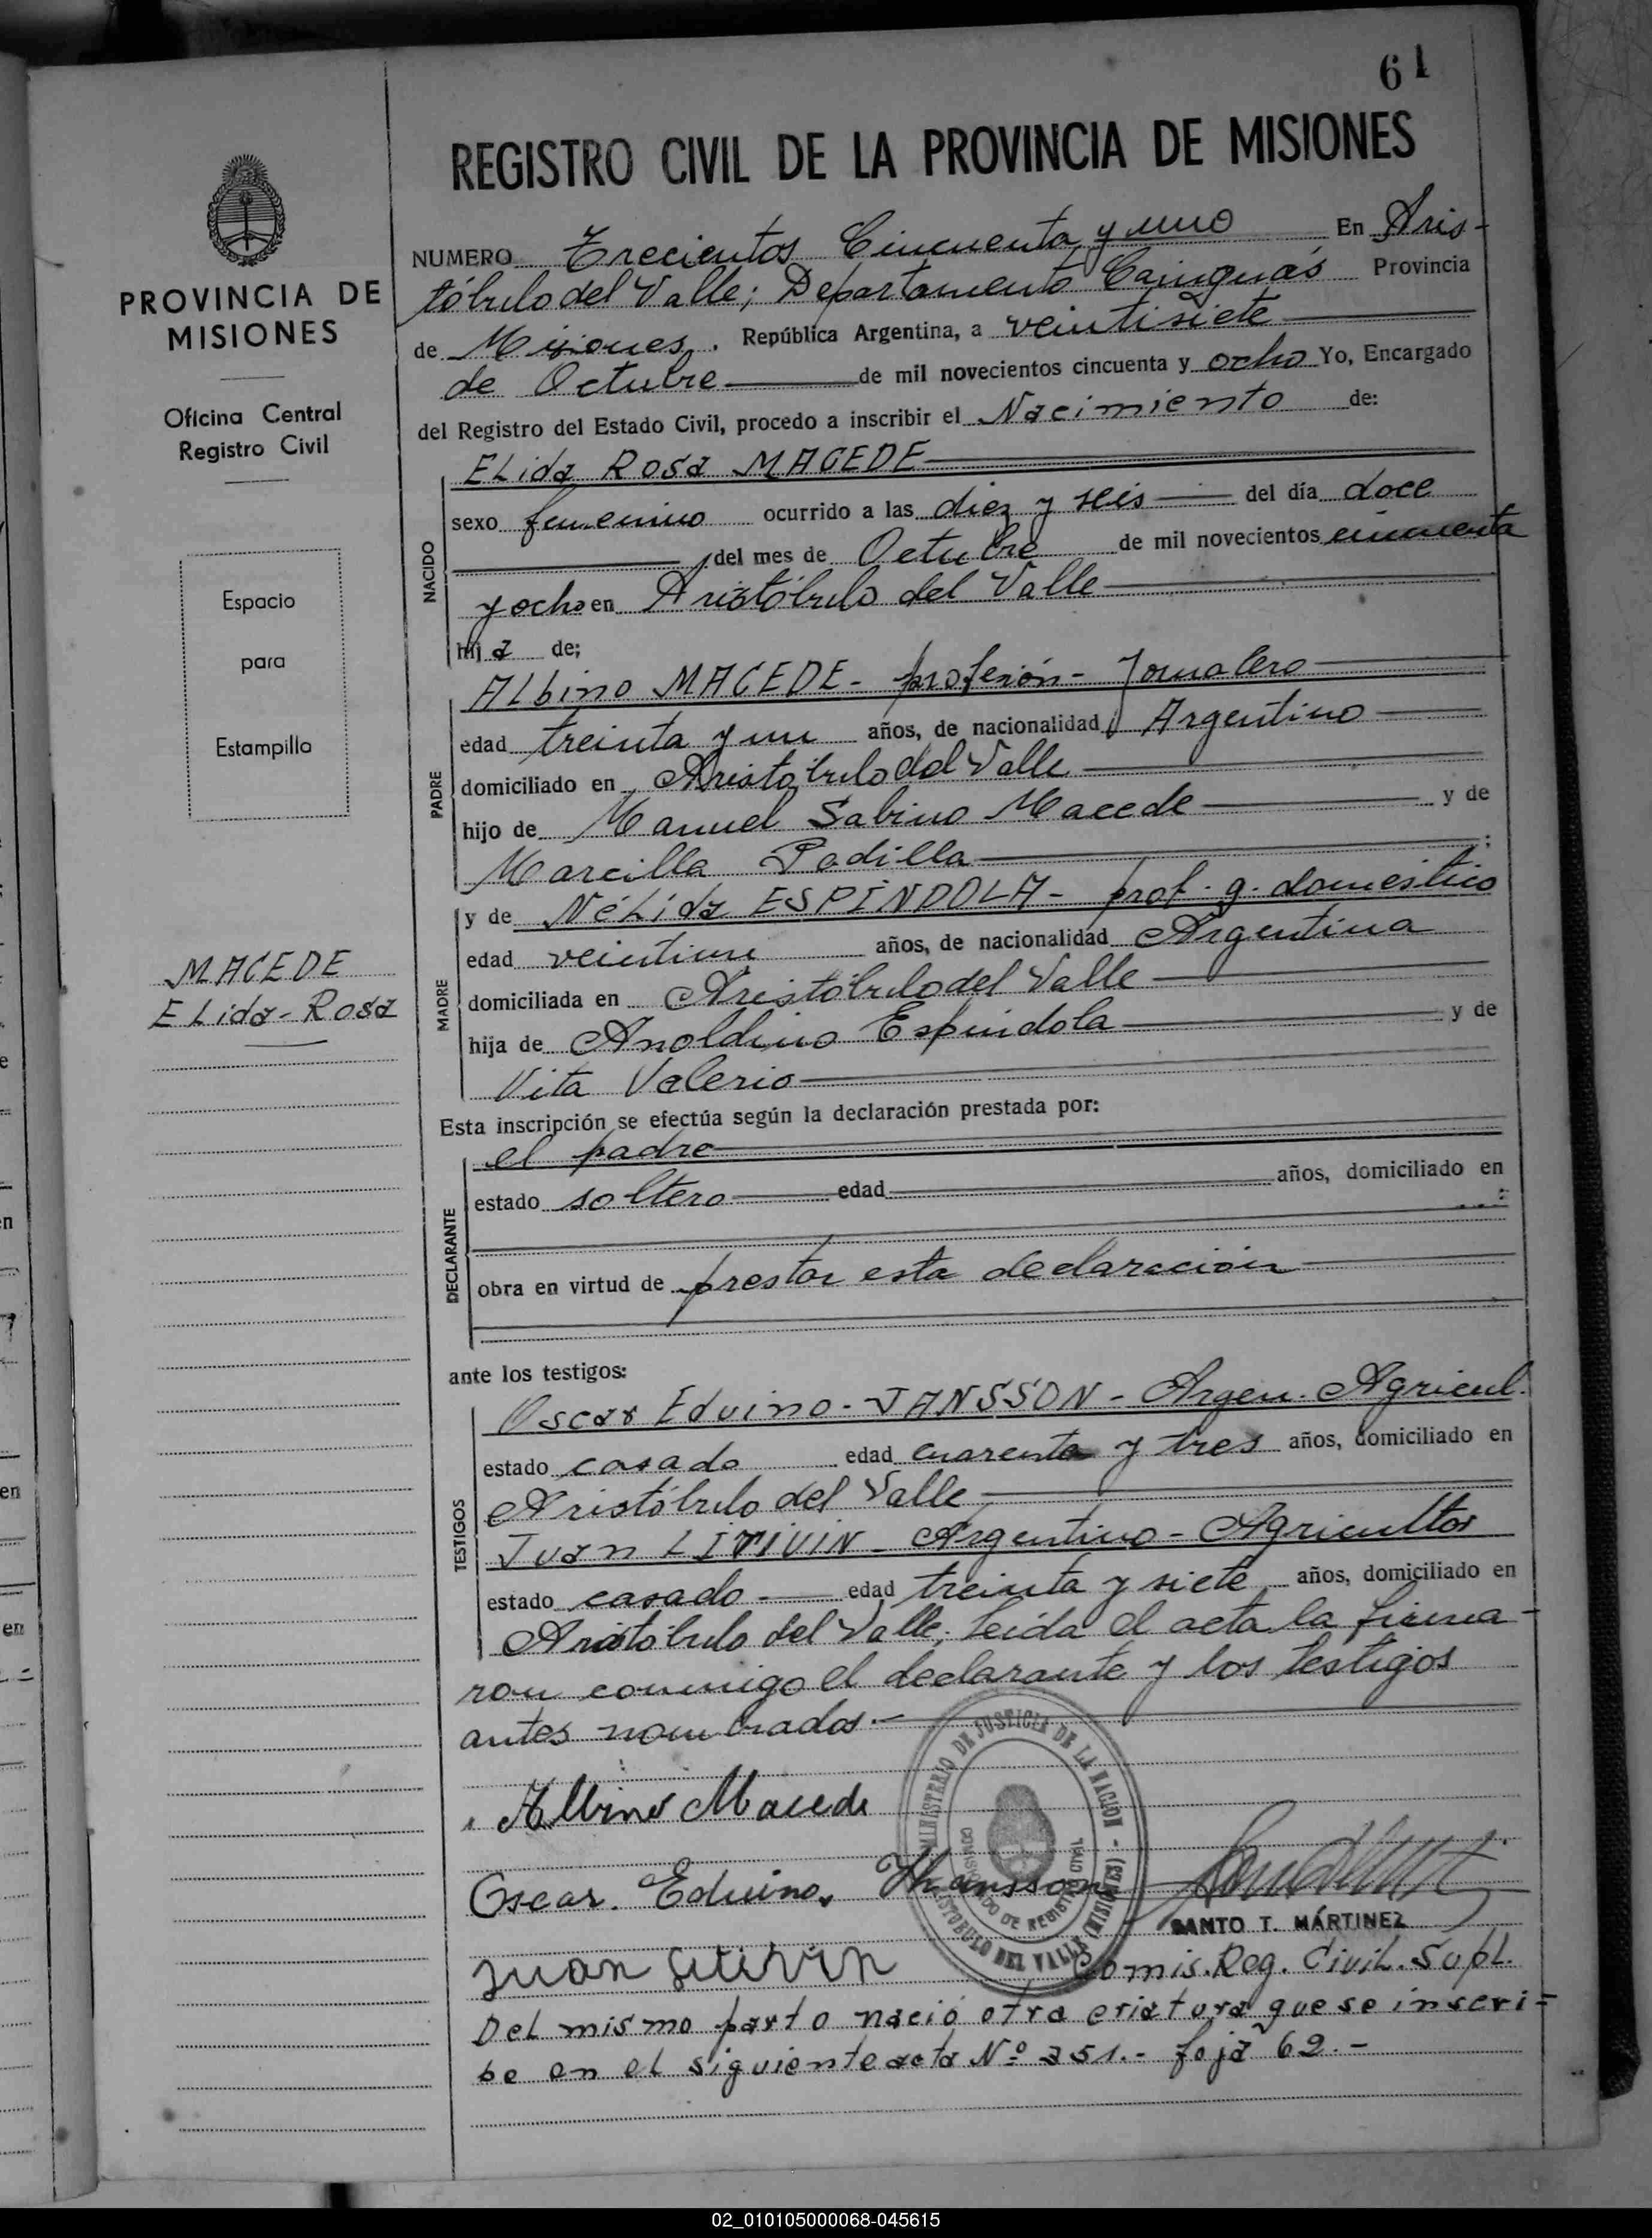 61
REGISTRO CIVIL DE LA PROVINCIA DE MISIONES
PROVINCIA DE
MISIONES
Oficina Central
Registro Civil
Espacio
para
Estampilla
MACEDE
ELida - Rosa
NUMERO Trecientos Cincuenta y uno En Aris-
tóbulo del Valle; Departamento Cainguás Provincia
de Misiones. República Argentina, a veintisiete
de Octubre de mil novecientos cincuenta y ocho Yo, Encargado
del Registro del Estado Civil, procedo a inscribir el Nacimiento de:
NACIDO
ELida Rosa MACEDE
sexo femenino ocurrido a las diez y seis del día doce
del mes de Octubre de mil novecientos cincuenta
y ocho en Aristóbulo del Valle
hija de:
PADRE
ALbino MACEDE - profesión - Jornalero
edad treinta y un años, de nacionalidad Argentino
domiciliado en Aristóbulo del Valle
hijo de Manuel Sabino Macede y de
Marcilla Padilla ;
MADRE
y de NéLida ESPINDOLA - prof. q. domestico
edad veintiun años, de nacionalidad Argentina
domiciliada en Aristóbulo del Valle
hija de Anoldino Espindola y de
Vita Valerio
Esta inscripción se efectúa según la declaración prestada por:
DECLARANTE
el padre
estado soltero edad años, domiciliado en
obra en virtud de prestar esta declaración
ante los testigos:
TESTIGOS
Oscar Eduino - JANSSON - Argen. Agricul.
estado casado edad cuarenta y tres años, domiciliado en
Aristóbulo del Valle
Juan LITIVIN - Argentino - Agricultor
estado casado edad treinta y siete años, domiciliado en
Aristóbulo del Valle; Leida el acta la firma-
ron conmigo el declarante y los testigos
antes nombrados.-
MINISTERIO DE JUSTICIA DE LA NACION - ARISTOBULO DEL VALLE (MISIONES)
Albino Macede
Oscar. Eduino. Jhansson
SANTO T. MÁRTINEZ
Juan Litivin
Comis. Reg. CiviL. SupL.
DeL mismo parto nació otra criatura que se inscri-
be en eL siguiente acta Nº 351.- foja 62.-
02_010105000068-045615